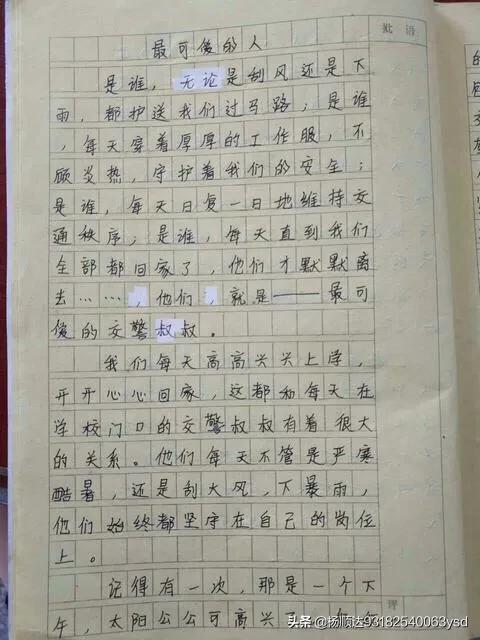 批语
最可俊的人
是谁，无论是刮风还是下
雨，都护送我们过马路；是谁
，每天穿着厚厚的工作服，不
顾炎热，守护着我们的安全；
是谁，每天日复一日地维持交
通秩序；是谁，每天直到我们
全部都回家了，他们才默默离
去……，他们，就是——最可
俊的交警叔叔。
我们每天高高兴兴上学，
开开心心回家，这都和每天在
学校门口的交警叔叔有着很大
的关系。他们每天不管是严寒
酷暑，还是刮大风，下暴雨，
他们始终都坚守在自己的岗位
上。
记得有一次，那是一个下
午，太阳公公可高兴了
头条@杨顺达93182540063ysd